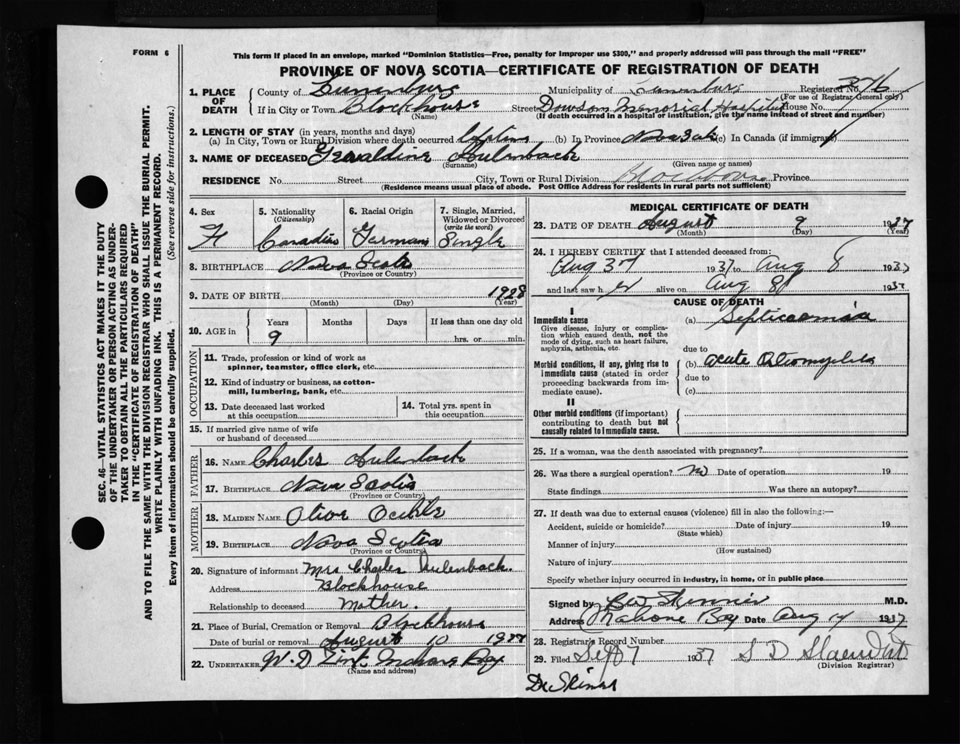 FORM 6
This form if placed in an envelope, marked "Dominion Statistics—Free, penalty for improper use $300," and properly addressed will pass through the mail "FREE"
PROVINCE OF NOVA SCOTIA—CERTIFICATE OF REGISTRATION OF DEATH
1. PLACE OF DEATH
County of Lunenburg Municipality of Lunenburg Registered No.
(For use of Registrar General only)
If in City or Town Blockhouse Street Dawson Memorial Hospital House No.
(Name) (If death occurred in a hospital or institution, give the name instead of street and number)
2. LENGTH OF STAY (in years, months and days)
(a) In City, Town or Rural Division where death occurred (b) In Province (c) In Canada (if immigrant)
3. NAME OF DECEASED Geraldine Aulenback
(Surname) (Given name or names)
RESIDENCE No. Street City, Town or Rural Division Blockhouse Province
(Residence means usual place of abode. Post Office Address for residents in rural parts not sufficient)
4. Sex F
5. Nationality (Citizenship) Canadian
6. Racial Origin German
7. Single, Married, Widowed or Divorced (write the word) Single
8. BIRTHPLACE Nova Scotia
(Province or Country)
9. DATE OF BIRTH 1928
(Month) (Day) (Year)
10. AGE in Years Months Days If less than one day old
9 hrs. or min.
OCCUPATION
11. Trade, profession or kind of work as spinner, teamster, office clerk, etc.
12. Kind of industry or business, as cotton-mill, lumbering, bank, etc.
13. Date deceased last worked at this occupation
14. Total yrs. spent in this occupation
15. If married give name of wife or husband of deceased
FATHER
16. NAME Charles Aulenback
17. BIRTHPLACE Nova Scotia
(Province or Country)
MOTHER
18. MAIDEN NAME Olive
19. BIRTHPLACE Nova Scotia
(Province or Country)
20. Signature of informant Mrs Charles Aulenback.
Address Blockhouse
Relationship to deceased Mother.
21. Place of Burial, Cremation or Removal Blockhouse
Date of burial or removal August 10 1937
22. UNDERTAKER W. D Mahone Bay
(Name and address)
MEDICAL CERTIFICATE OF DEATH
23. DATE OF DEATH August 9 1937
(Month) (Day) (Year)
24. I HEREBY CERTIFY that I attended deceased from:
Aug 3 1937 to Aug 8 1937
and last saw her alive on Aug 8 1937
CAUSE OF DEATH
I
Immediate cause
Give disease, injury or complication which caused death, not the mode of dying, such as heart failure, asphyxia, asthenia, etc.
(a) Septicaemia
due to
Morbid conditions, if any, giving rise to immediate cause (stated in order proceeding backwards from immediate cause).
(b) acute Osteomyelitis
due to
(c)
II
Other morbid conditions (if important) contributing to death but not causally related to immediate cause.
25. If a woman, was the death associated with pregnancy?
26. Was there a surgical operation? no Date of operation 19
State findings Was there an autopsy?
27. If death was due to external causes (violence) fill in also the following:—
Accident, suicide or homicide? Date of injury 19
(State which)
Manner of injury
(How sustained)
Nature of injury
Specify whether injury occurred in industry, in home, or in public place
Signed by Skinner M.D.
Address Mahone Bay Date Aug 14 1937
28. Registrar's Record Number
29. Filed Sept 7 1937 S D
(Division Registrar)
Dr Skinner
SEC. 46—VITAL STATISTICS ACT MAKES IT THE DUTY
OF THE UNDERTAKER OR PERSON ACTING AS UNDER-
TAKER TO OBTAIN ALL THE PARTICULARS REQUIRED
IN THE "CERTIFICATE OF REGISTRATION OF DEATH"
AND TO FILE THE SAME WITH THE DIVISION REGISTRAR WHO SHALL ISSUE THE BURIAL PERMIT.
WRITE PLAINLY WITH UNFADING INK. THIS IS A PERMANENT RECORD.
Every item of information should be carefully supplied. (See reverse side for instructions.)